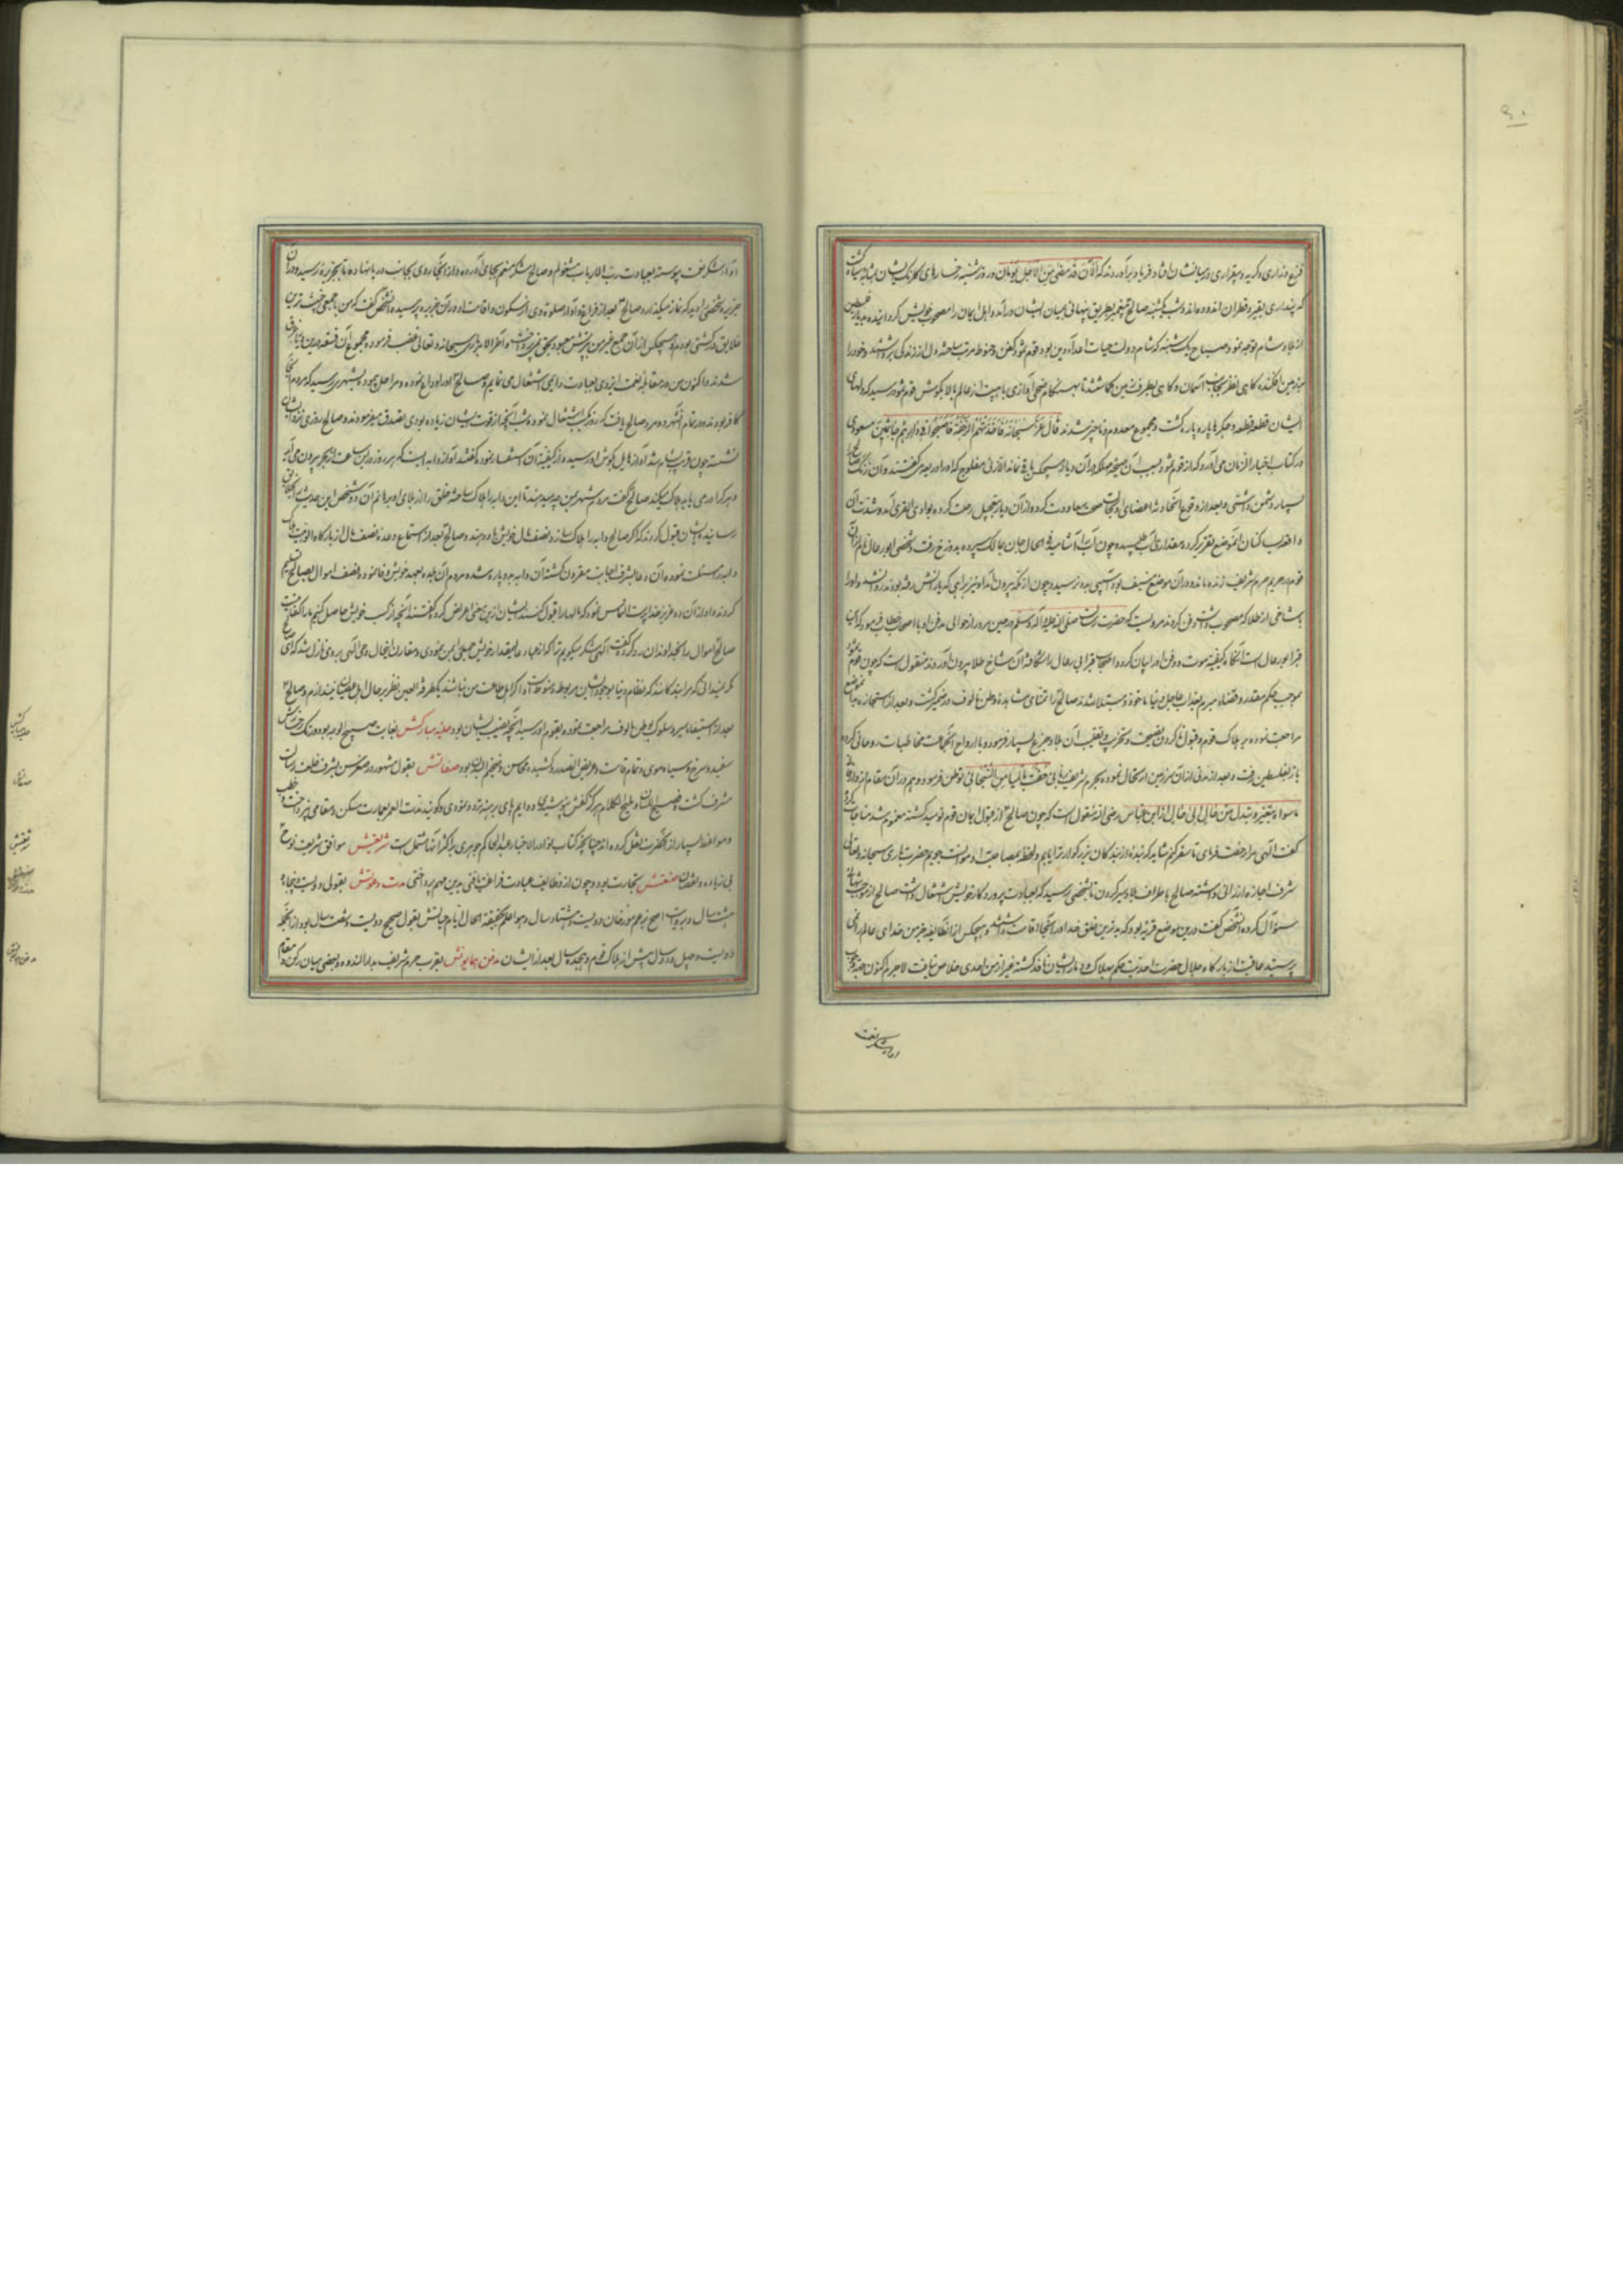 ۹۰
فزع و زاری و گریه و بیقراری در میانشان افتاد و فریاد برآوردند که الآن قد مضی من الاجل یومان و روز شنبه رخسارهای گلرنگ ایشان بمثابه سیاه گشت
که پنداری بقیر و قطران اندوده‌اند و شب یکشنبه صالح پیغمبر بطریق پنهانی از میان ایشان درآمد و اهل ایمان را مصحوب خویش گردانیده بدیار فلسطین
از بلاد شام توجه نمود و صباح یکشنبه که شام دولت حیات اعداء دین بود قوم ثمود کفن و حنوط مرتب ساخته دل از زندگی برداشتند و خود را
بر زمین افکنده گاهی نظر بجانب آسمان و گاهی بطرف زمین می‌کاشتند تا بهنگام ضحی آوازی با هیبت از عالم بالا بگوش قوم ثمود رسید که دلهای
ایشان قطعه قطعه و جگرها پاره پاره گشت و مجموع معدوم و ناچیز شدند قال عز سبحانه فاخذتهم الرجفة فاصبحوا فی دارهم جاثمین مسعودی
در کتاب اخبار الزمان می‌آورد که از قوم ثمود بسبب آن صیحه مهلکه در آن دیار هیچکس باقی نماند الا زنی مفلوج که او را دریعه می‌گفتند و آن زن
بسیار دشمن داشتی و بعد از وقوع آن حادثه اعضای او بحالت صحت معاودت کرده از آن دیار بتعجیل رحلت کرده بوادی القری آمد و شدت آن
و اقعه با ساکنان آن موضع تقریر کرد و مقداری آب طلبیده چون آب آشامید فی الحال جان بمالک سپرده بدوزخ رفت و شخصی ابورغال نام از آن
قوم در حریم حرم شریف زنده مانده در آن موضع ضیف بود آسیبی بدو نرسید و چون از مکه بیرون آمد او نیز براهی که یارانش رفته بودند روانه شد و او را
بشاخی از طلا که مصحوب داشت دفن کردند مرویست که حضرت رسالت صلی الله علیه و آله و سلم در حین مرور از حوالی مدفن او با اصحاب خطاب فرمود که این
قبر ابورغال است آنگاه کیفیت موت و دفن او را بیان کرد و اصحاب قبر ابی رغال را شکافته آن شاخ طلا بیرون آوردند منقول است که چون قوم ثمود
بموجب حکم مقدر و قضاء مبرم بعذاب عاجل دنیا ماخوذ و مبتلا شدند صالح را تمنای مشاهده وطن مالوف در ضمیر گشت و بعد از استجازه بدان موضع
مراجعت نموده بر هلاک قوم و قبول ناکردن نصیحت و تخریب و تعقیب آن بلاد جزع بسیار فرموده با ارواح آن جماعت مخاطبات روحانی کرد
باز بفلسطین رفت و بعد از مدتی از آن سرزمین ارتحال نموده بحرم شریف توطن فرمود و هم در آن مقام از دار
ما سواه یتغیر و یتبدل من حال الی حال از ابن عباس رضی الله منقول است که چون صالح از قبول ایمان قوم نومید گشته مغموم شد مناجات
گفت الهی مرا رخصت فرمای تا سفر کنم شاید که بنده از بندگان بزرگوار ترا یابم و لحظه بمصاحبت او موانست جویم حضرت باری سبحانه و تعالی
شرف اجازت ارزانی داشته صالح باطراف بلاد سیر کردن تا بشخصی رسید که بعبادت پروردگار خویش اشتغال داشت صالح از
سؤال کرد آن شخص گفت درین موضع قریه بود که بدترین خلق خدا در آنجا اقامت داشتند و هیچکس از آن طایفه جز من خدای عالم را نمی
پرستید عاقبت از بارگاه جلال حضرت احدیت حکم بهلاک دمار ایشان نافذ گشته غیر از من احدی خلاص نیافت لاجرم اکنون
اداء شکر نعمت
اداء شکر نعمت پیوسته بعبادت رب الارباب مشغولم و صالح شکر منعم بجای آورده و از آنجا روی بجانب دریا نهاده تا بجزیره رسید و در آن
جزیره شخصی را دید که نماز میگذارد و صالح بعد از فراغ و آداب صلوة وی از سکون و اقامت او در آن جزیره پرسید آن شخص گفت که من با جمعی
خلایق در کشتی بودم و هیچکس از آن جمع غیر من بپرستش معبود بحق نمی‌پرداخت و آخر الامر باری سبحانه و تعالی غضب فرموده مجموع آن فرقه درین دریا غرق
شدند و اکنون من در مقابله نعمت ایزدی بعبادت دایمی اشتغال می‌نمایم و صالح او را وداع نموده و مراحل پیموده بشهری رسید که مردم آنجا
کافر بودند و در تمام آن شهر دو مرد صالح یافت که روز بکسب اشتغال نموده شب آنچه از قوت ایشان زیاده بودی تصدق میفرمودند و صالح روزی نزد ایشان
نشسته چون قریب بشام شد آواز هایل بگوش او رسید و از کیفیت آن استفسار نمود گفتند آواز دابه ایست که هر روز درین ساعت از بحر بیرون می‌آید
و هر که را در می‌یابد هلاک میکند صالح گفت مردم شهر بمن چه میدهند تا این دابه را هلاک ساخته خلق را از بلای او برهانم آن دو شخص این حدیث
رسانیده ایشان قبول کردند که اگر صالح دابه را هلاک سازد نصف مال خویش باو دهند و صالح بعد از استماع وعده نصف مال از بارگاه الوهیت
دابه را مسئلت نمود و آن دعا بشرف اجابت مقرون گشته آن دابه به دو پاره شد و مردم آن بلده بعهد خویش وفا نموده نصف اموال بصالح
کردند و او از آن دو عزیز خدا پرست التماس نمود که مالها را قبول کنند ایشان از این معنی اعراض کرده گفتند آنچه از کسب خویش حاصل کنیم ما را کفایت
صالح اموال را بخداوندان رد کرده گفت الهی شکر میگویم ترا که از عباد عابد مقدار خویش جمعی بمن نمودی و مقارن اینحال وحی الهی بر وی نازل شد که ای
مگر نمیدانی که مرا بندگانند که نظام دنیا بوجود ایشان مربوطه و منوط است و اگر اهل طاعت من نباشند یکطرفة العین نظر بر حال اهل عصیان نیندازم و صالح
بعد از استیفاء سیر و سلوک بوطن مالوف مراجعت نموده و بقوم او رسید آنچه نصیب ایشان بود حلیه مبارکش بغایت صبیح الوجه بود و رنگ رخش
سفید و سرخ و سیاه موی و تمام قامت و عریض الصدر و کشیده محاسن و ضخیم البدن بود صفاتش بقول مشهور در صغر سن بشرف خلعت رسالت
مشرف گشت و فصیح اللسان و ملیح الکلام هرگز کفش نپوشیدی و دایم پای برهنه تردد نمودی و گویند مدت العمر بعمارت مسکن و مقامی نپرداخت
و مواعظ بسیار از آنحضرت نقل کرده‌اند چنانچه کتاب نوادر الاخبار عبدالحاکم جوهری بر اکثر آنها مشتمل است شریعتش موافق شریعت نوح
بی زیاده و نقصان صنعتش تجارت بود و چون از وظایف عبادت فراغت یافتی بدین مهم پرداختی مدت دعوتش بقولی دویست و پنجاه و
هشت سال و بروایت اصح بزعم مورخان دویست و هشتاد سال و هو اعلم بحقیقة الحال ایام حیاتش بقول صحیح دویست و شصت سال بود از آنجمله
دویست و چهل و دو سال پیش از هلاک قوم و هیجده سال بعد از ایشان مدفن همایونش بقرب حرم شریف بدار الندوه و بعضی میان رکن و مقام
حلیه مبارکش
صفاتش
شریعتش
صنعتش
مدت دعوتش
مدفن همایونش